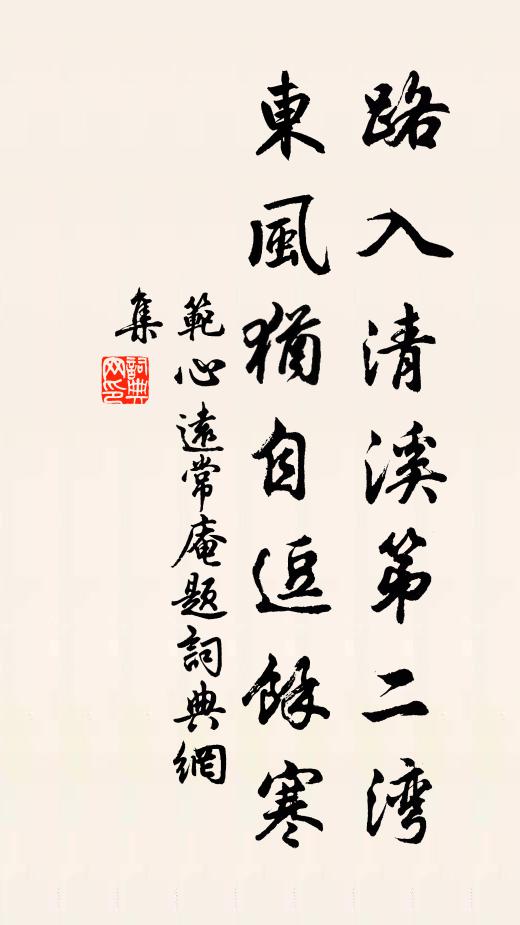 路入清溪第二湾
東風猶自逗餘寒
範心遠常庵題詞典網
集
詞典
网印